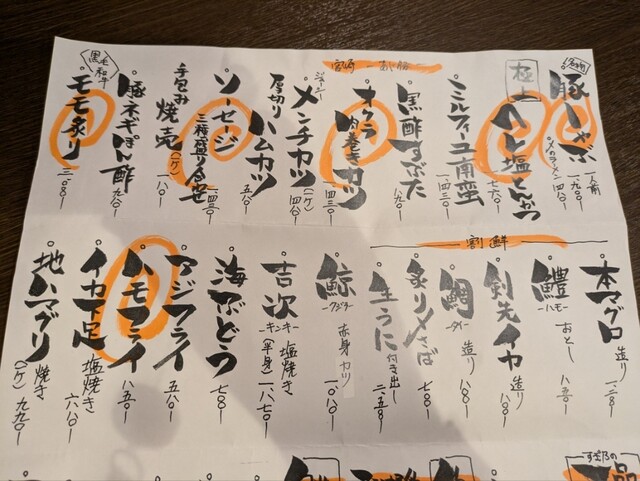 名物
豚しゃぶ
一人前 一、九八〇-
〆のラーメン 四八〇-
極上
ヘレ塩とんかつ
ミルフィーユ南蛮
一、四三〇-
黒酢すぶた
八九〇-
オクラ肉巻きカツ
一、四三〇-
メンチカツ(一ケ)
四八〇-
厚切りハムカツ
五八〇-
ソーセージ
三種盛り合せ
手包み焼売(一ケ)
一八〇-
豚ネギぽん酢
九八〇-
黒毛和牛
モモ炙り
割鮮
本マグロ 造り
鱧 -ハモ- おとし
八五〇-
剣先イカ 造り
八八〇-
鯛 -タイ- 造り
八八〇-
炙り〆さば
七八〇-
生うに 付き出し
鯨 -クジラ- 赤身カツ
一、〇八〇-
吉次 -キンキ- 塩焼き
(半身) 一、八七〇-
海ぶどう
七八〇-
アジフライ
五八〇-
ハモフライ
八五〇-
イカ下足 塩焼き
六八〇-
地ハマグリ 焼き
(一ケ) 九九〇-